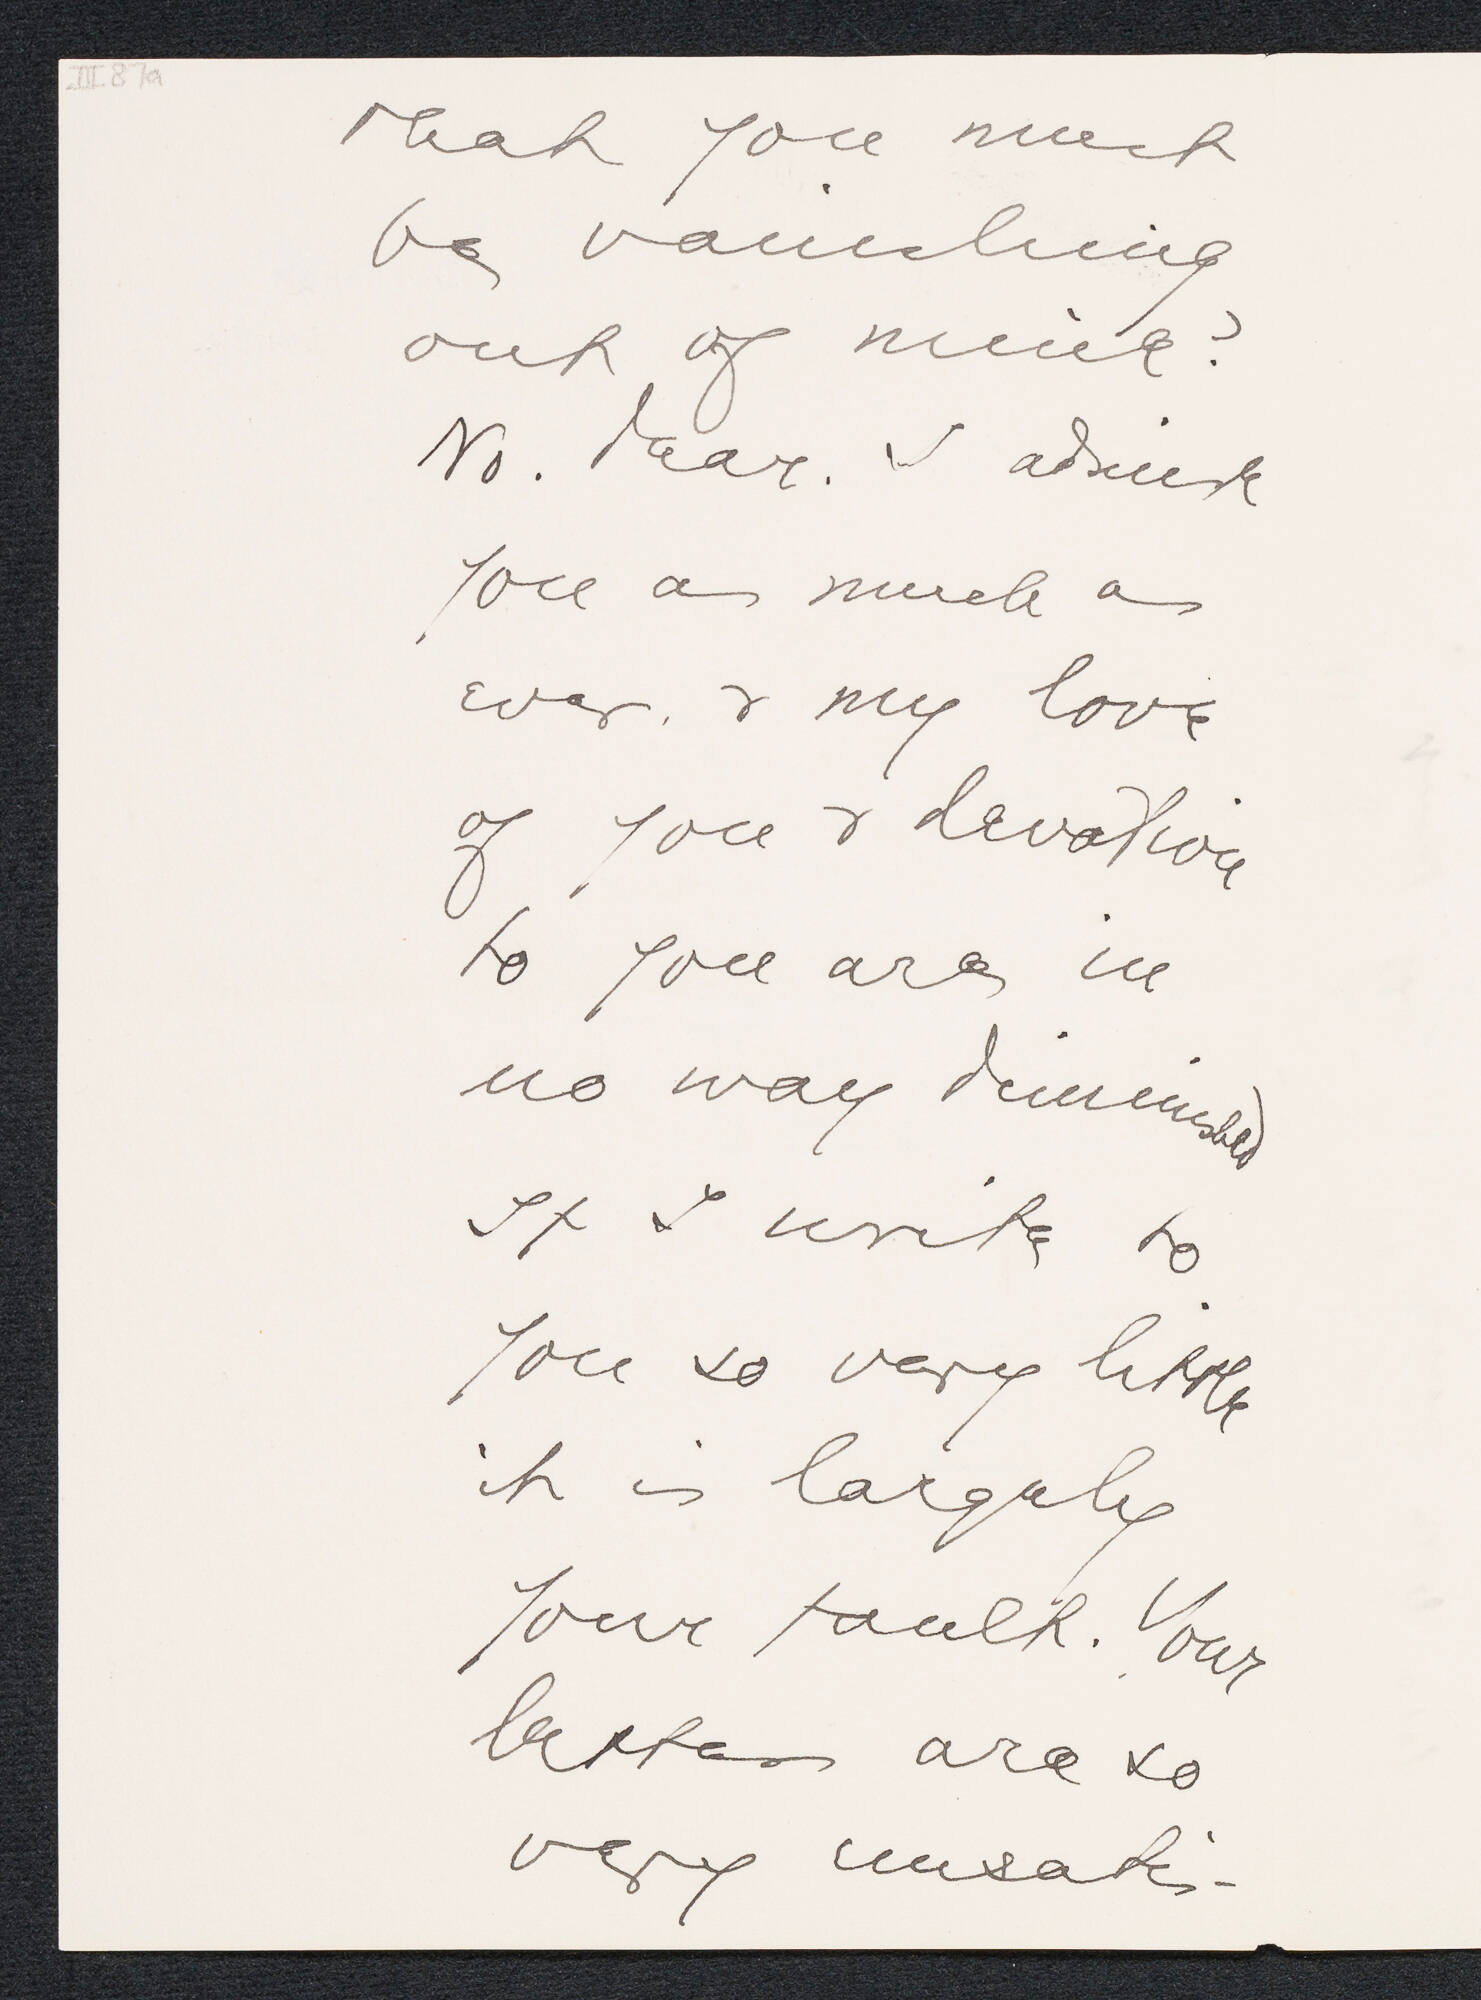 III.87a
that you must
be vanishing
out of mine?
No. Dear. I admire
you as much as
ever. & my love
of you & devotion
to you are in
no way diminished
If I write to
you so very little
it is largely
your fault. Your
letters are so
very unsatis-